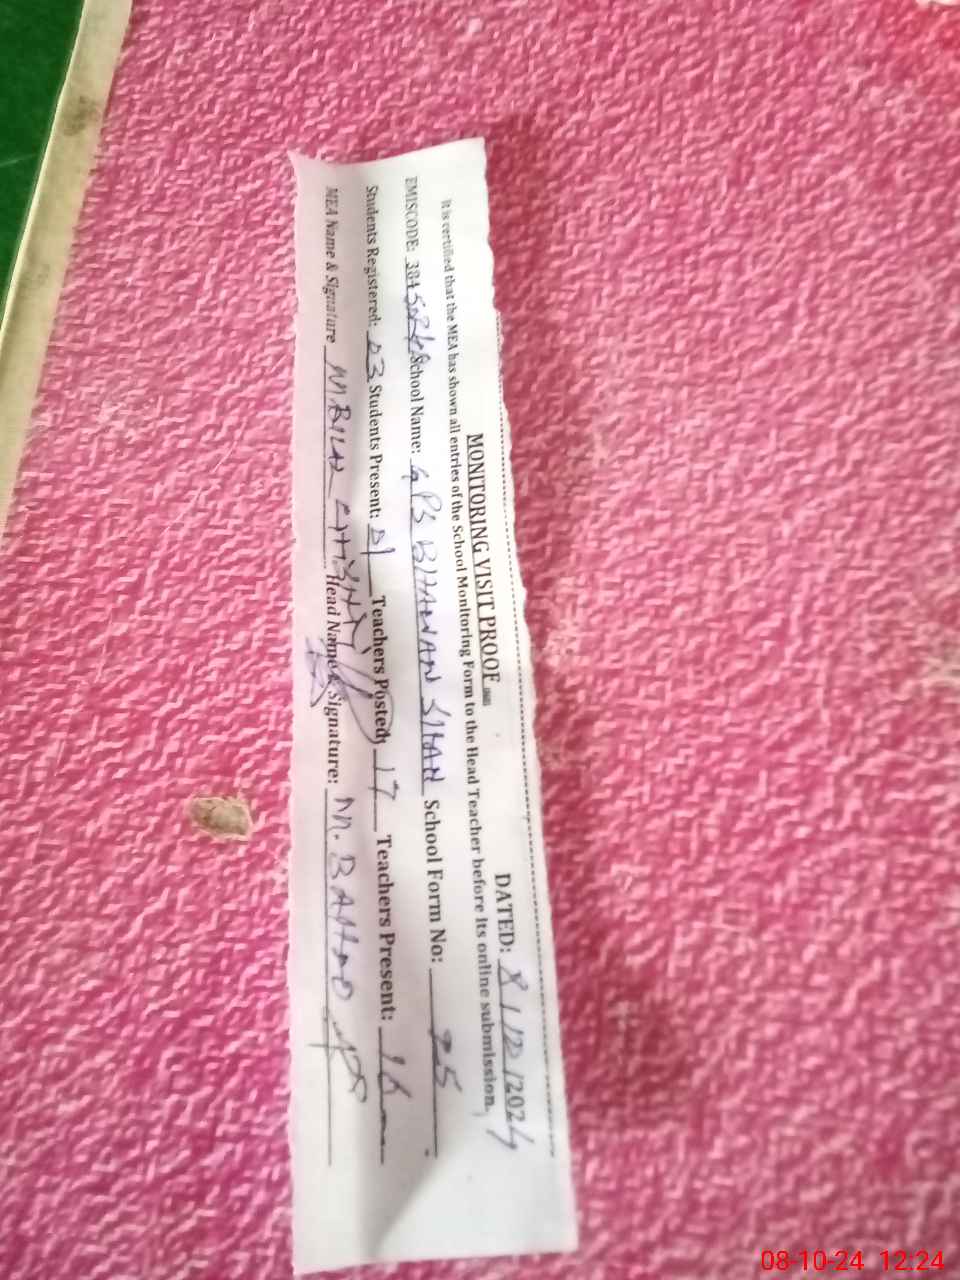 MONITORING VISIT PROOF DATED: 8/10/2024
It is certified that the MEA has shown all entries of the School Monitoring Form to the Head Teacher before its online submission.
EMISCODE: 384 School Name: G PS BHAWAN SHAH School Form No: 25
Students Registered: 03 Students Present: 01 Teachers Posted: 17 Teachers Present: 16
MEA Name & Signature M. BILAL Head Name & Signature: M.
08-10-24 12:24